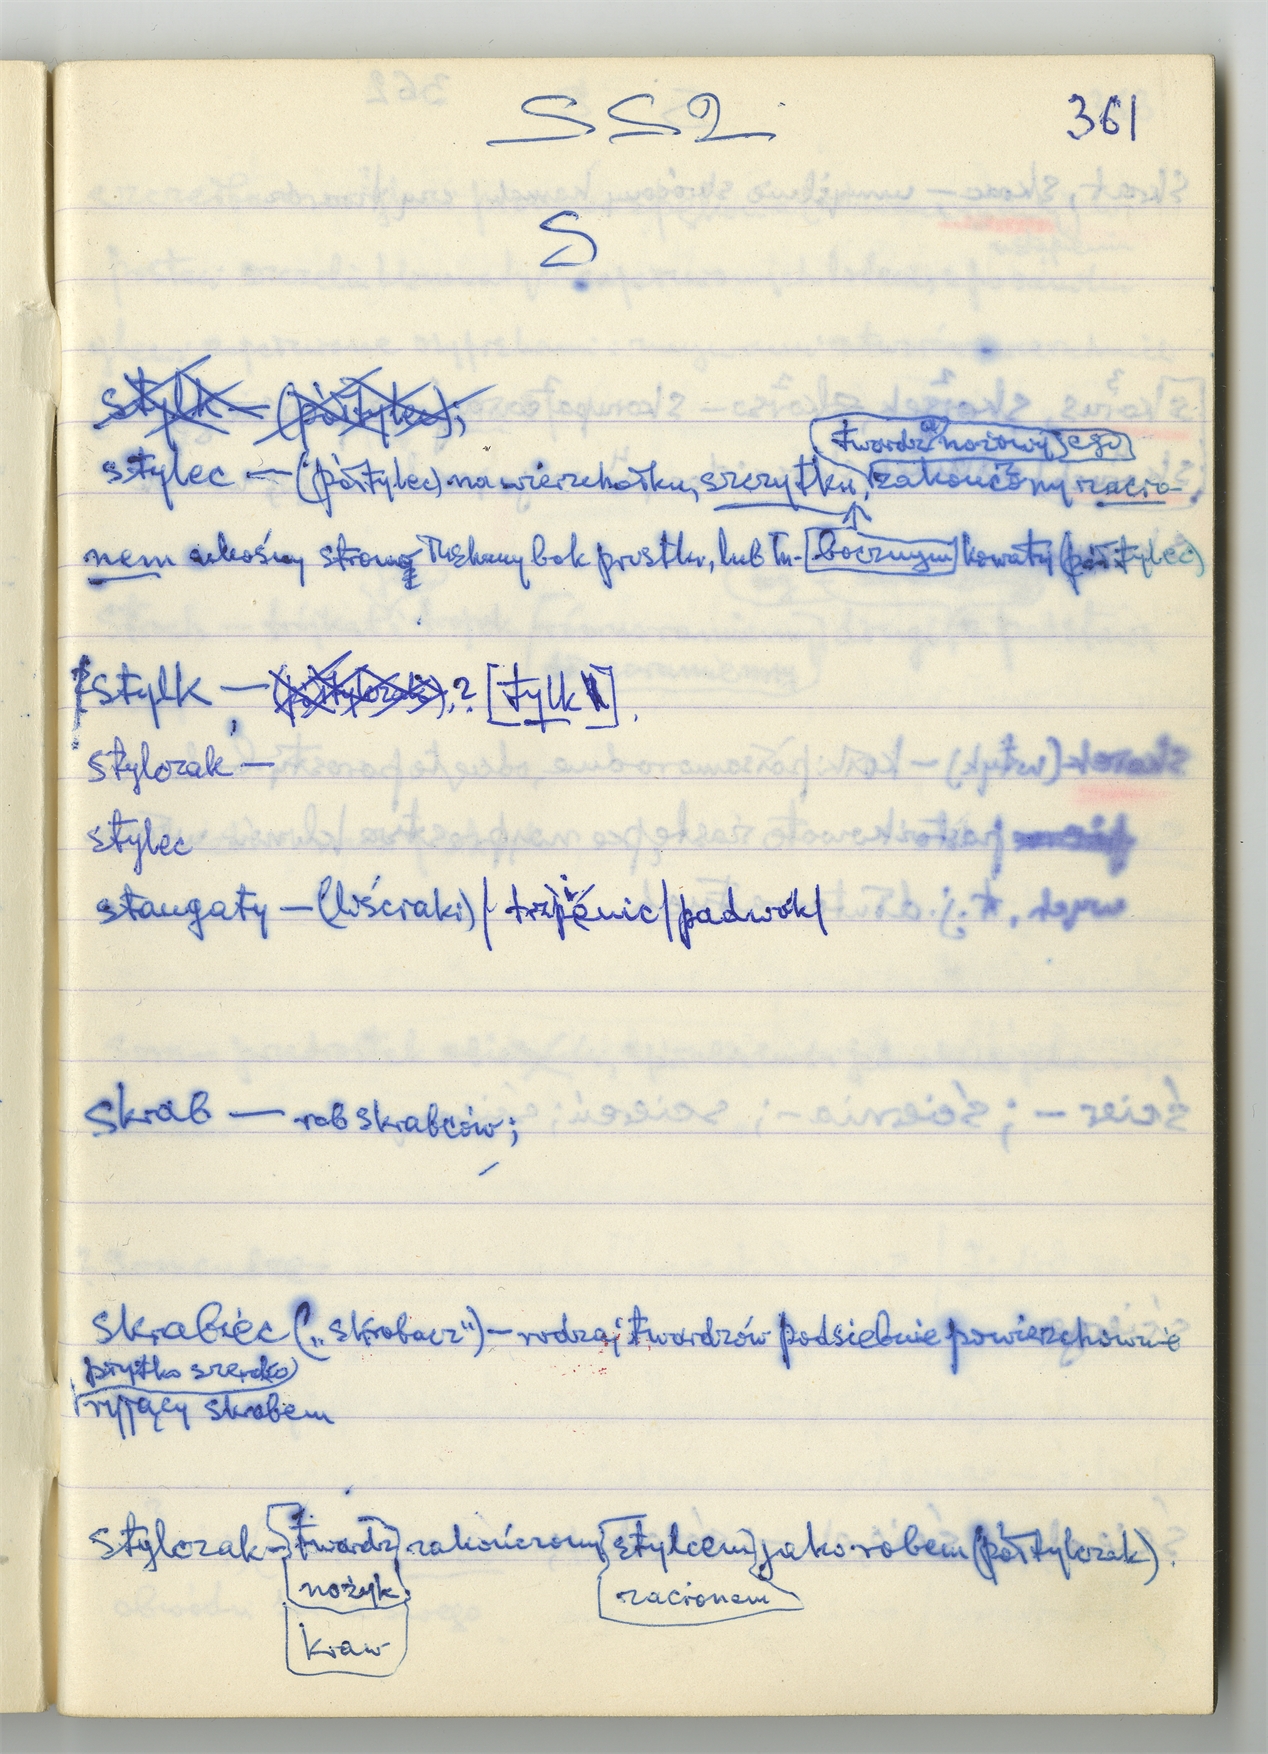 SS2 361
S
stylk — (półtylec);
twardz nożowy jego
stylec — (półtylec) na wierzchołku, szczytku, zakończony zacio-
nem ukośny stromy łuskany bok prostki, lub łu- bocznym kowaty (półtylec)
stylk — ? [tylk]
stylczak —
stylec
staugaty — (liściaki) / trzpienic / padwók /
skrab — rab skrabców;
skrabiec („skrobacz“) — rodzaj twardzów podsiebnie powierzchownie
płytko szeroko
ryjący skrabem
stylczak — twardz zakończony stylcem jako robem (półtylczak).
nożyk zacionem
kraw